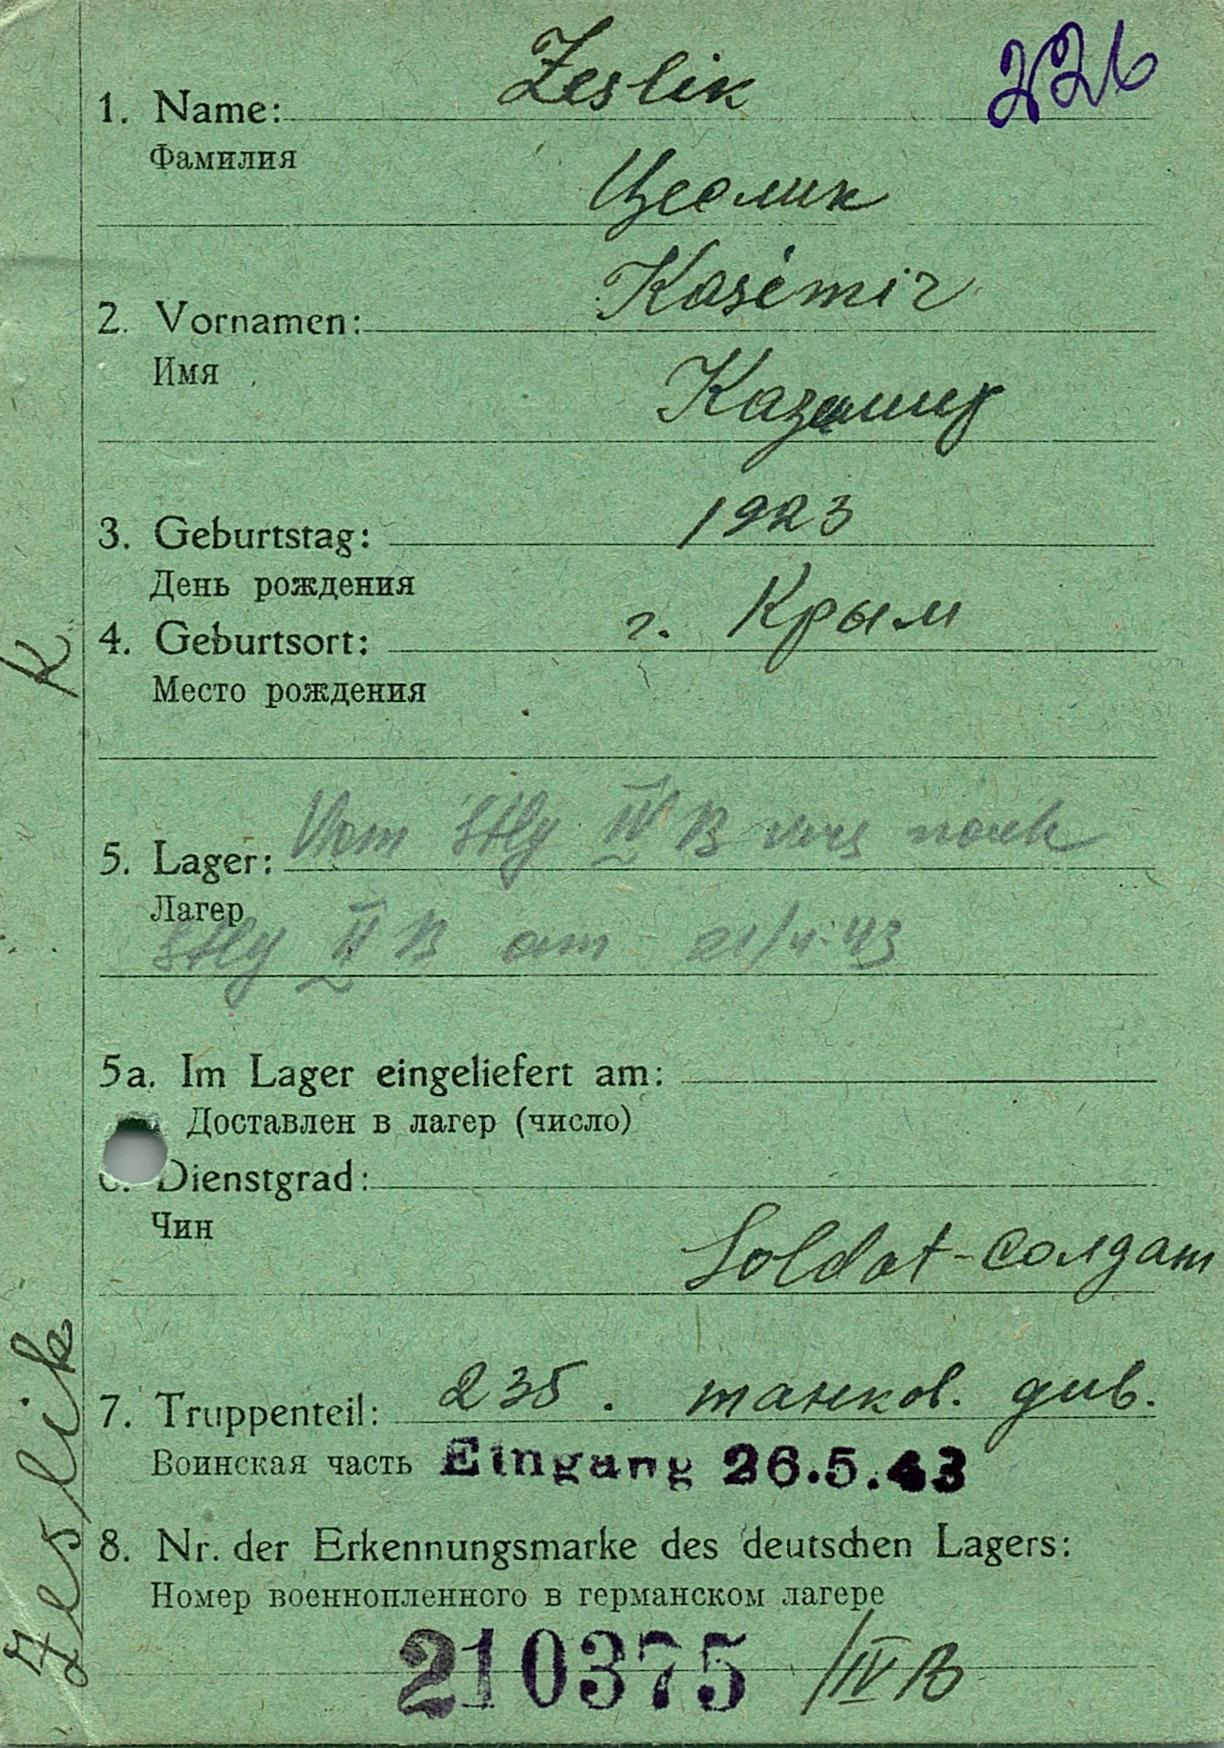 Zeslik
226
1. Name:
Фамилия
Цеслик
Kasimir
2. Vornamen:
Имя
Казимир
1923
3. Geburtstag:
День рождения
г. Крым
4. Geburtsort:
Место рождения
K
Vom Stlg IV B vers nach
5. Lager:
Лагер
Stlg II B am 21/4.43
5a. Im Lager eingeliefert am:
Доставлен в лагер (число)
6. Dienstgrad:
Чин
Soldat-солдат
235. танков. див.
7. Truppenteil:
Воинская часть Eingang 26.5.43
8. Nr. der Erkennungsmarke des deutschen Lagers:
Номер военнопленного в германском лагере
210375 /IV B
Zeslik